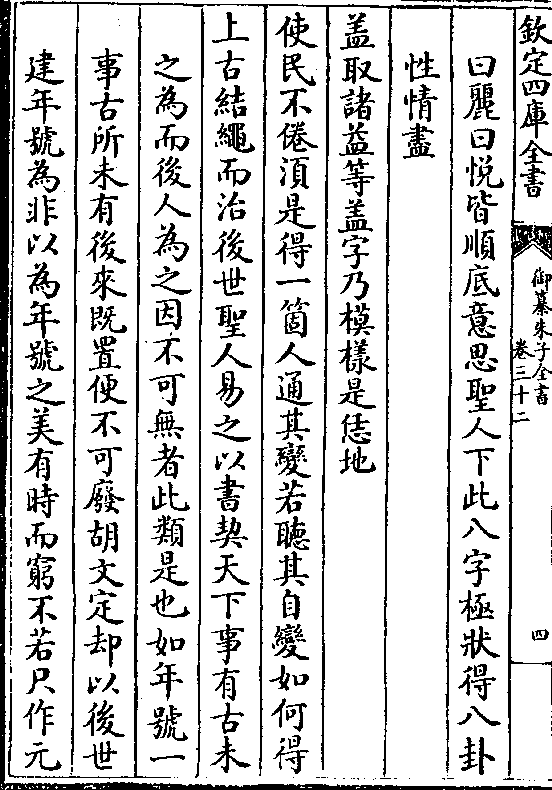 欽定四庫全書
御纂朱子全書
卷三十二
四
曰麗曰悅皆順底意思聖人下此八字極狀得八卦
性情盡
盖取諸益等盖字乃模樣是恁地
使民不倦湏是得一箇人通其變若聽其自變如何得
上古結繩而治後世聖人易之以書契天下事有古未
之為而後人為之因不可無者此類是也如年號一
事古所未有後來既置便不可廢胡文定却以後世
建年號為非以為年號之美有時而窮不若只作元